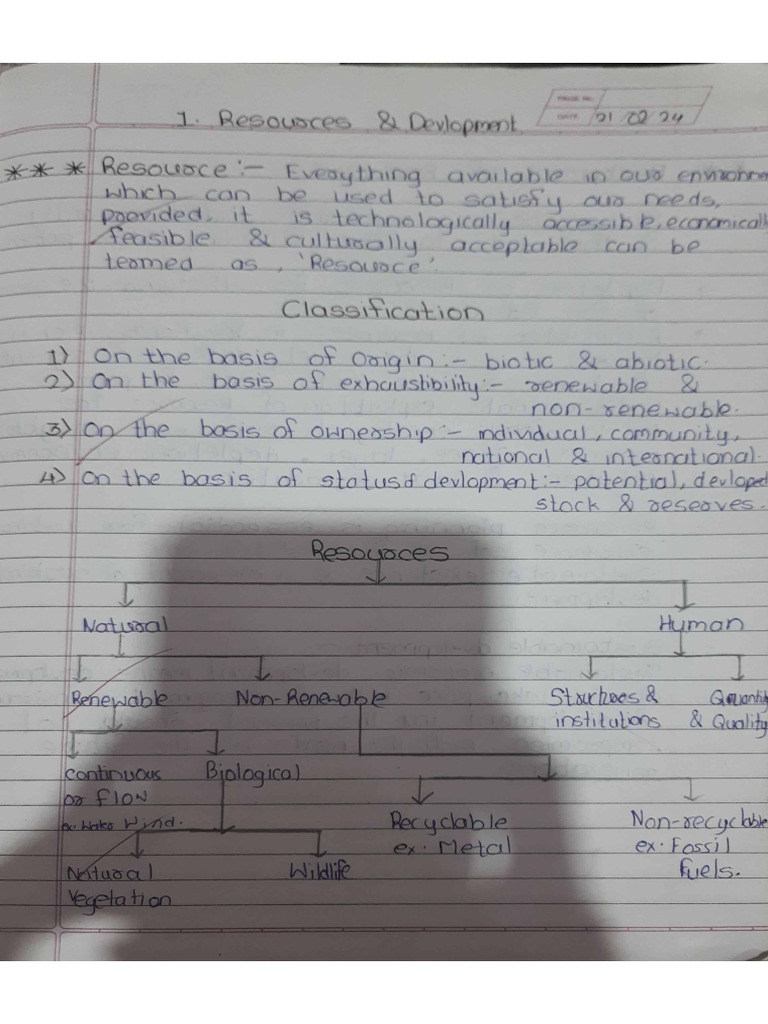 PAGE NO.
1. Resources & Devlopment DATE 21 02 24
*** Resource :- Everything available in our environme
which can be used to satisfy our needs,
provided, it is technologically accessible, economicall
feasible & culturally acceptable can be
termed as, 'Resource'.
Classification
1) On the basis of Origin :- biotic & abiotic.
2) On the basis of exhaustibility :- renewable &
non-renewable.
3) On the basis of ownership :- individual, community,
national & international.
4) On the basis of status of devlopment :- potential, devloped
stock & reserves.
Resources
Natural Human
Renewable Non-Renewable Structures & Quantity
institutions & Quality
Continuous Biological
or Flow Recyclable Non-recyclable
ex. Water Wind. ex. Metal ex. Fossil
Natural Wildlife Fuels.
Vegetation